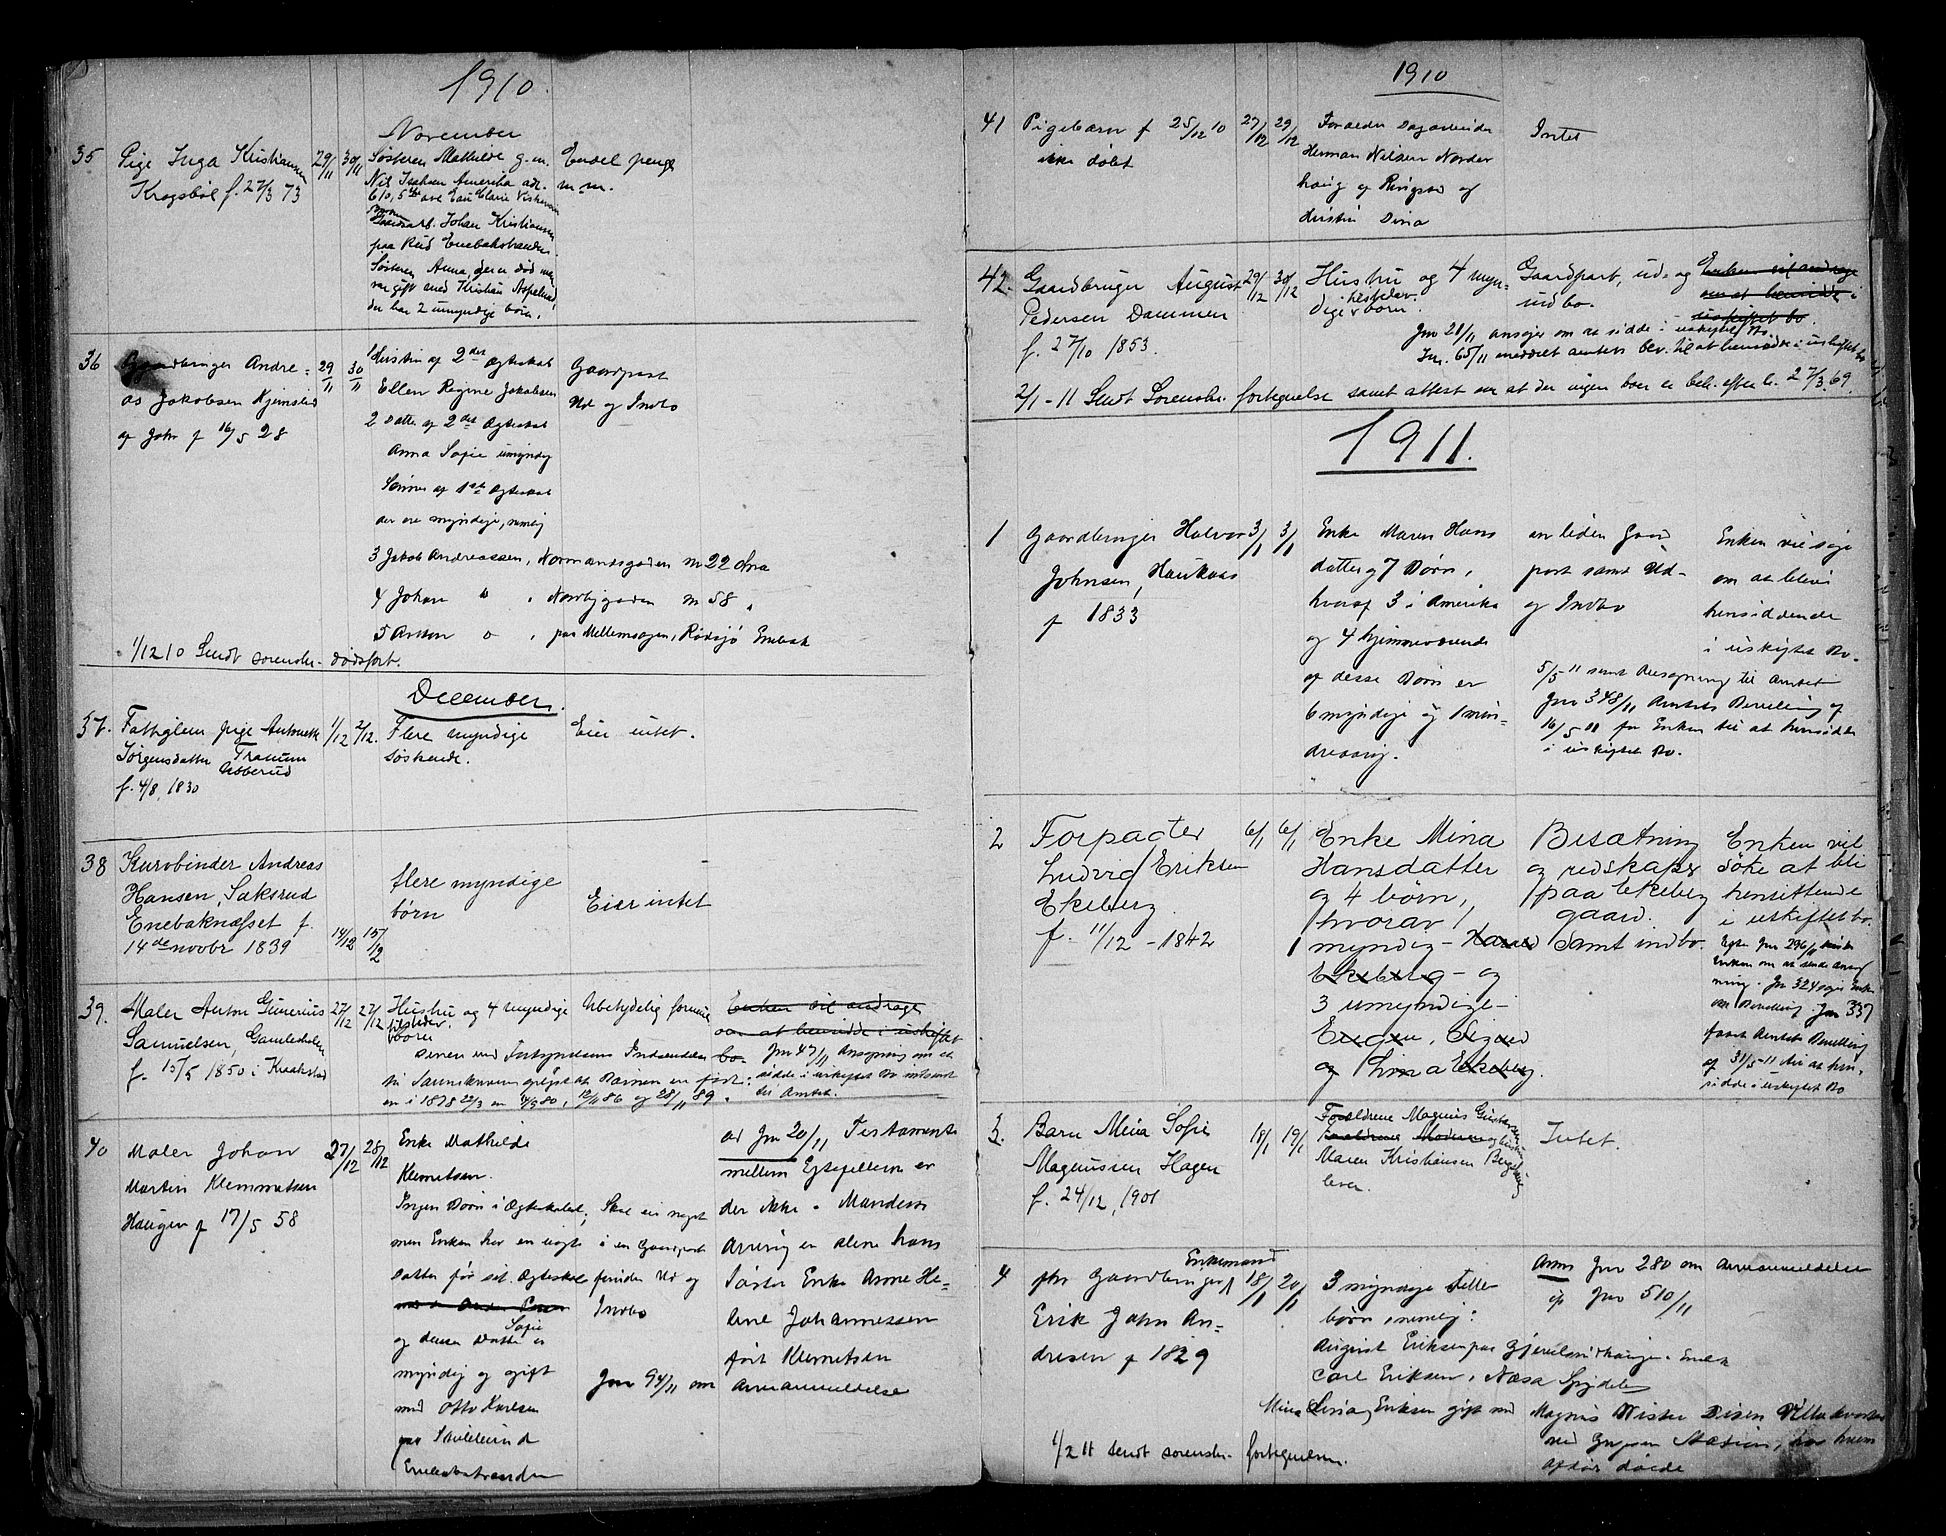 1910.
November
35 Pige Inga Kristiansen 29/11 30/11 Søsteren Mathilde g. m. Endel penge
Kragsbøl f. 27/3 73 Nil Isaksen Amerika adr. m. m.
610, 5te ave Eau Claire
Johan Kristiansen
paa Rud Enebakstranden
Søsteren Anna, der er død
var gift med Kristian
der har 2 umyndige børn.
36 Gaardbruger Andre- 29/11 30/11 1 Hustru af 2det Ægteskab Gaardpart
as Jakobsen Kjemstad Ellen Regine Jakobsen Ud og Indbo
af f 16/5 28 2 Datter af 2det Ægteskab
Anna Sofie umyndig
Sønner af 1ste Ægteskab
der ere myndige, nemlig
3 Jakob Andreassen, Normandsgaden nr 22 Kra
4 Johan " , Norbygaden nr 58 "
5 Anton " , paa Mellemsagen, Rødsjø Enebak
1/12 10 Sendt sorenskr. dødsfort.
December.
37. Fattiglem pige Antonette 1/12 2/12. Flere myndige Eier intet.
Jørgensdatter Tranum søskende.
Ubberud
f. 4/8 1830
38 Kurvbinder Andreas
Hansen, Saksrud flere myndige
Enebaknæsset f. børn Eier intet
14de novbr 1839 14/12 15/12
39. Maler Anton Gunerius 27/12 27/12 Hustru og 4 myndige Ubetydelig formue Enken vil andrage
Samuelsen, Gamleskolen børn om at hensidde i uskiftet
f. 15/5 1850 i Kraakstad bo. Jnr 47/11 Ansøgning om at
sidde i uskiftet Bo indsendt
til Amtet.
en i 1878 22/3 en 14/9 80, 12/11 86 og 28/11 89.
40 Maler Johan 27/12 28/12 Enke Mathilde ad Jnr 20/11 Testamente
Martin Klemmetsen Klemetsen. mellem Egtefellerne er
Haugen f 17/5 58 Ingen Børn i Ægteskabet, Skal eie noget der ikke. Mandens
men Enken har en uægte i en Gaardpart Arving er alene hans
Datter før sit Ægteskab foruden Ud og Søster Enke Anne He-
Indbo lene Johannessen
og denne Datter Sofie er født Klemetsen
myndig og gift Jnr 94/11 om Arveanmeldelse
med Otto Karlsen
paa
Enebakstranden
1910
41 Pigebarn f 25/12 10 27/12 29/12 Foraldre Dagarbeider Intet
ikke døbt Herman Nilsen Norder
haug af Ringsad og
Kristin Dina
42. Gaardbruger August 29/12 30/12 Hustru og 4 myn- Gaardpart, ud- og Enken vil andrage
Pedersen Dammen dige børn. indbo. om at hensidde i
f. 27/10 1853. uskiftet bo.
Jnr 21/11 ansøger om at sidde i uskiftet Bo.
Jnr. 65/11 meddelt amtets bev. til at hensidde i uskiftet bo
2/1 - 11 Sendt Sorenskr. fortegnelse samt attest om at der ingen boer er beh. efter l. 27/3. 69.
1911.
1 Gaardbruger Halvor 3/1 3/1 Enke Maren Hans en liden Gaard Enken vil søge
Johnsen, Haukaas datter og 7 Børn, part samt Ud- om at blive
f 1833 hvoraf 3 i Amerika og Indbo hensiddende
og 4 hjemmeværende i uskiftet Bo.
af disse Børn er 5/5 - 11 sendt Ansøgning til Amtet
6 myndige og 1 min- Jnr 348/11 Amtets Bevilling af
dreaarig. 16/5 11 for Enken til at hensidde
i uskiftet Bo.
2 Forpagter 6/1 6/1 Enke Mina Besætning Enken vil
Ludvig Eriksen Hansdatter og redskaper søke at bli
Ekeberg og 4 børn, paa Ekeberg hensittende
f. 11/12 - 1842 hvorav 1 gaard. i uskiftet bo.
myndig - Harald Samt indbo.
Ekeberg - og
3 umyndige -
Eugen, Sigurd
og Lina Ekeberg.
Jnr 296/11
Enken om at sende Ansøg
ning. Jnr 324 søger Enken
om Bevilling Jnr 337
faaet Amtets Bevilling
af 31/5 - 11 til at hen-
sidde i uskiftet Bo
3. Barn Mina Sofie 18/1 19/1 Forældrene Magnus Gustavsen Intet.
Magnussen Hagen Maren Kristiansen
f. 24/12 1901 lever.
4 fhv Gaardbruger, Enkemand 18/1 20/1 3 myndige Anm Jnr 280 om Arveanmeldelse
Erik John An- børn, nemlig: Jnr 510/11
dresen f 1829 August Eriksen paa
Carl Eriksen,
Mina Eriksen gift med Magnus
1/2 11 sendt sorenskr. fortegnelsen. døde